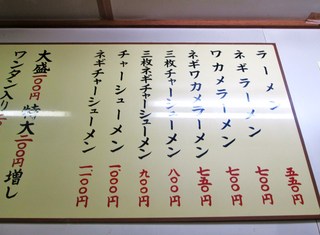 ラーメン 五五〇円
ネギラーメン 七〇〇円
ワカメラーメン 七〇〇円
ネギワカメラーメン 七五〇円
三枚チャーシューメン 八〇〇円
三枚ネギチャーシューメン 九〇〇円
チャーシューメン 一、〇〇〇円
ネギチャーシューメン 一、一〇〇円
大盛一〇〇円 特大二〇〇円増し
ワンタン入り